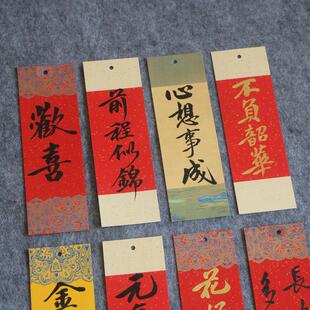 歡喜
前程似錦
心想事成
不負韶華
金
元
花
長
多